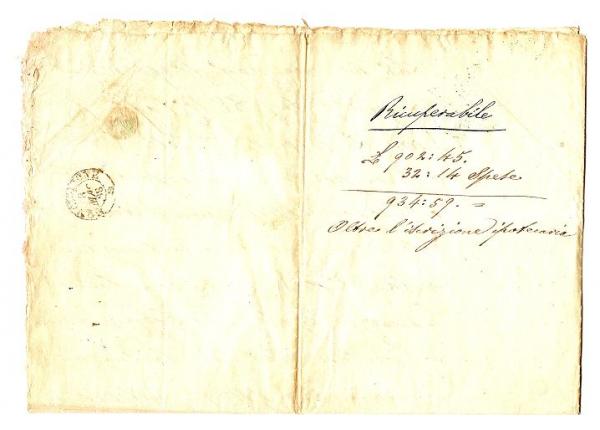 Ricuperabile
L 902:45.
32:14 Spese
934:59. =
Oltre l'iscrizione ipotecaria